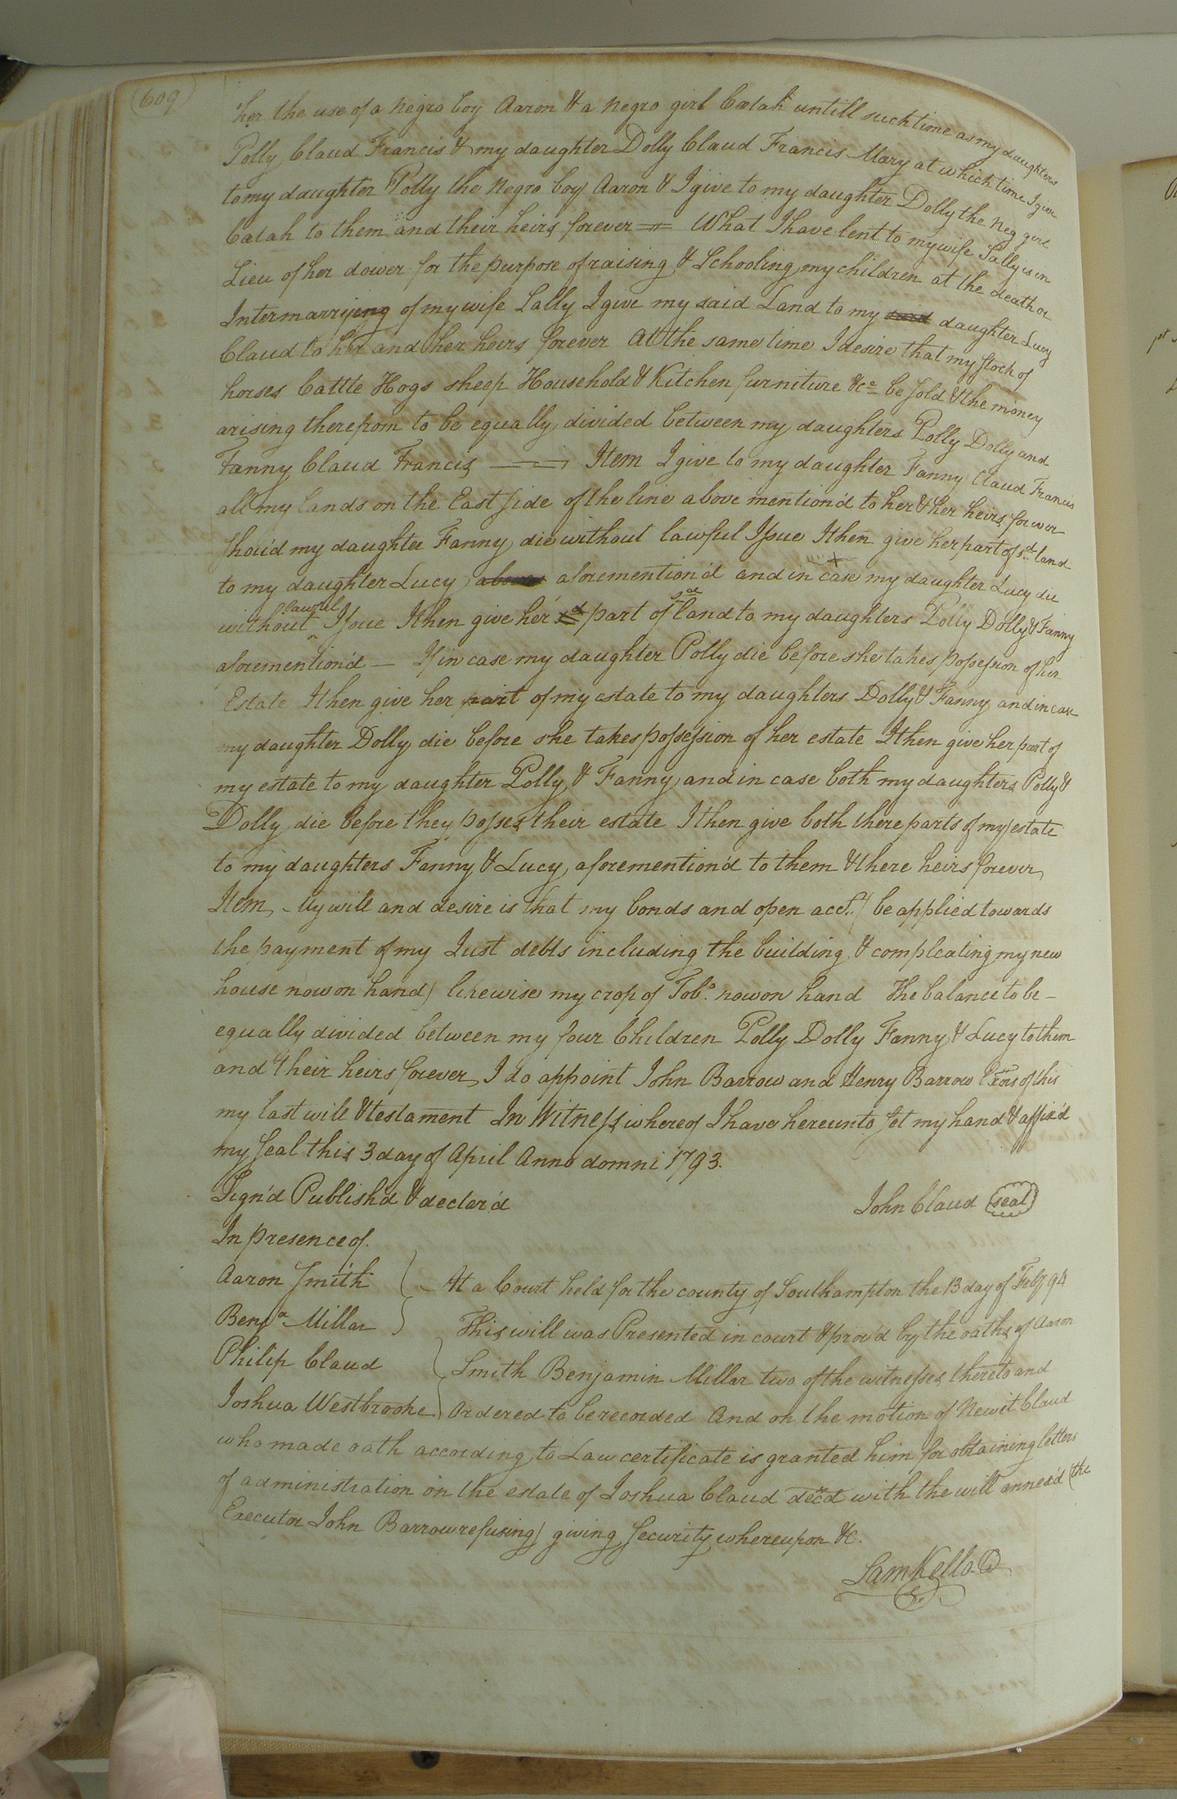 (609)
her the use of a Negro boy Aaron & a Negro girl Cealah untill such time as my daughters
Polly Claud Francis & my daughter Dolly Claud Francis Mary at which time I give
to my daughter Polly the Negro boy Aaron & I give to my daughter Dolly the Neg girl
Cealah to them and their heirs forever = What I have lent to my wife Sally is in
Lieu of her dower for the purpose of raising & Schooling my children at the death or
Intermarrying of my wife Sally I give my said Land to my said daughter Lucy
Claud to her and her heirs forever At the same time I desire that my stock of
horses Cattle Hogs sheep Household & Kitchen furniture &c be sold & the money
arising therefrom to be equally divided between my daughters Polly Dolly and
Fanny Claud Francis — Item I give to my daughter Fanny Claud Francis
all my lands on the East side of the line above mention'd to her & her heirs forever
shou'd my daughter Fanny die without lawful Issue I then give her part of sd. land
to my daughter Lucy above aforemention'd and in case my daughter Lucy die
without lawful Issue I then give her sd part of sd land to my daughters Polly Dolly & Fanny
aforemention'd — If in case my daughter Polly die before she takes possession of her
Estate I then give her part of my estate to my daughters Dolly & Fanny and in case
my daughter Dolly die before she takes possession of her estate I then give her part of
my estate to my daughter Polly & Fanny and in case both my daughters Polly &
Dolly die before they possess their estate I then give both there parts of my estate
to my daughters Fanny & Lucy aforemention'd to them & there heirs forever
Item, My will and desire is that my bonds and open acct.) be applied towards
the payment of my Just debts including the building & compleating my new
house now on hand) likewise my crop of Tobo. now on hand The balance to be —
equally divided between my four Children Polly Dolly Fanny & Lucy to them
and their heirs forever I do appoint John Barrow and Henry Barrow Exors of this
my last will & testament In Witness whereof I have hereunto set my hand & affix'd
my seal this 3 day of April Anno domni 1793.
Sign'd Publish'd & declar'd
John Claud (seal)
In presence of.
Aaron Smith
Benja. Millar
Philip Claud
Joshua Westbrooke
At a Court held for the county of Southampton the 13 day of Feby 94
This will was Presented in court & prov'd by the oaths of Aaron
Smith Benjamin Millar two of the witnesses thereto and
Ordered to be recorded And on the motion of Newit Claud
who made oath according to Law certificate is granted him for obtaining letters
of administration on the estate of Joshua Claud decd with the will annex'd (the
Executor John Barrow refusing) giving security whereupon &c.
Sam Kello C